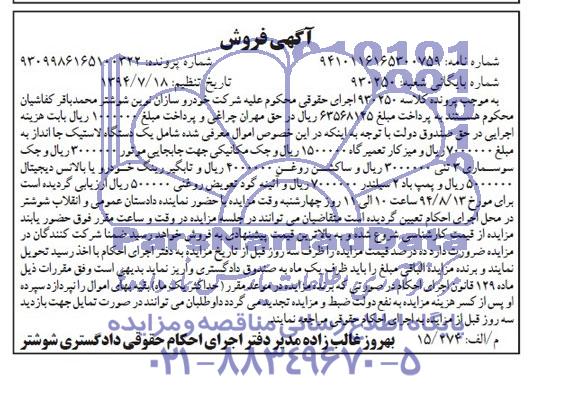 آگهی فروش
شماره نامه: ۹۴۱۰۱۱۶۱۶۵۳۰۰۷۵۹ شماره پرونده: ۹۳۰۹۹۸۶۱۶۵۱۰۰۳۲۲
شماره بایگانی شعبه: ۹۳۰۲۵۰ تاریخ تنظیم: ۱۳۹۴/۷/۱۸
به موجب پرونده کلاسه ۹۳۰۲۵۰ اجرای حقوقی محکوم علیه شرکت خودرو سازان نوین شوشتر محمدباقر کفاشیان
محکوم هستند به پرداخت مبلغ ۶۳۵۶۸۱۴۵ ریال در حق مهران چراغی و پرداخت مبلغ ۱۰۰۰۰۰۰ ریال بابت هزینه
اجرایی در حق صندوق دولت با توجه به اینکه در این خصوص اموال معرفی شده شامل یک دستگاه لاستیک جا انداز به
مبلغ ۷۰۰۰۰۰۰۰ ریال و میز کار تعمیرگاه ۱۵۰۰۰۰۰ ریال و جک مکانیکی جهت جابجایی موتور ۳۰۰۰۰۰۰ ریال و جک
سوسماری ۲ تنی ۳۰۰۰۰۰۰ ریال و ساکشن روغن ۴۰۰۰۰۰۰ ریال و تابگیر رینگ خودرو با بالانس دیجیتال
ریال و پمپ باد ۲ سیلندر ۷۰۰۰۰۰۰ ریال و آئینه گود تعویض روغنی ۵۰۰۰۰۰ ریال ارزیابی گردیده است
برای مورخ ۹۴/۸/۱۳ ساعت ۱۰ الی ۱۱ روز چهارشنبه وقت مزایده با حضور نماینده دادستان عمومی و انقلاب شوشتر
در محل اجرای احکام تعیین گردیده است متقاضیان می توانند در جلسه مزایده در وقت و ساعت مقرر فوق حضور یابند
مزایده از قیمت کارشناسی شروع شده و به بالاترین قیمت پیشنهادی به فروش خواهد رسید ضمنا شرکت کنندگان در
مزایده ضرورت دارد ده درصد قیمت مزایده را ظرف سه روز قبل از تاریخ مزایده به دفتر اجرای احکام با اخذ رسید تحویل
نمایند و برنده مزایده الباقی مبلغ را باید ظرف یک ماه به صندوق دادگستری واریز نماید بدیهی است وفق مقررات ذیل
ماده ۱۲۹ قانون اجرای احکام در صورتی که برنده مزایده در موعد مقرر (حداکثر یک ماه) بقیه بهای اموال را نپردازد سپرده
او پس از کسر هزینه مزایده به نفع دولت ضبط و مزایده تجدید می گردد داوطلبان می توانند در صورت تمایل جهت بازدید
سه روز قبل از مزایده به اجرای احکام حقوقی مراجعه نمایند
م/الف: ۱۵/۴۷۴ بهروز غالب زاده مدیر دفتر اجرای احکام حقوقی دادگستری شوشتر
ParsNamadData
پایگاه اطلاع رسانی مناقصه و مزایده
۰۲۱-۸۸۳۴۹۶۷۰-۵